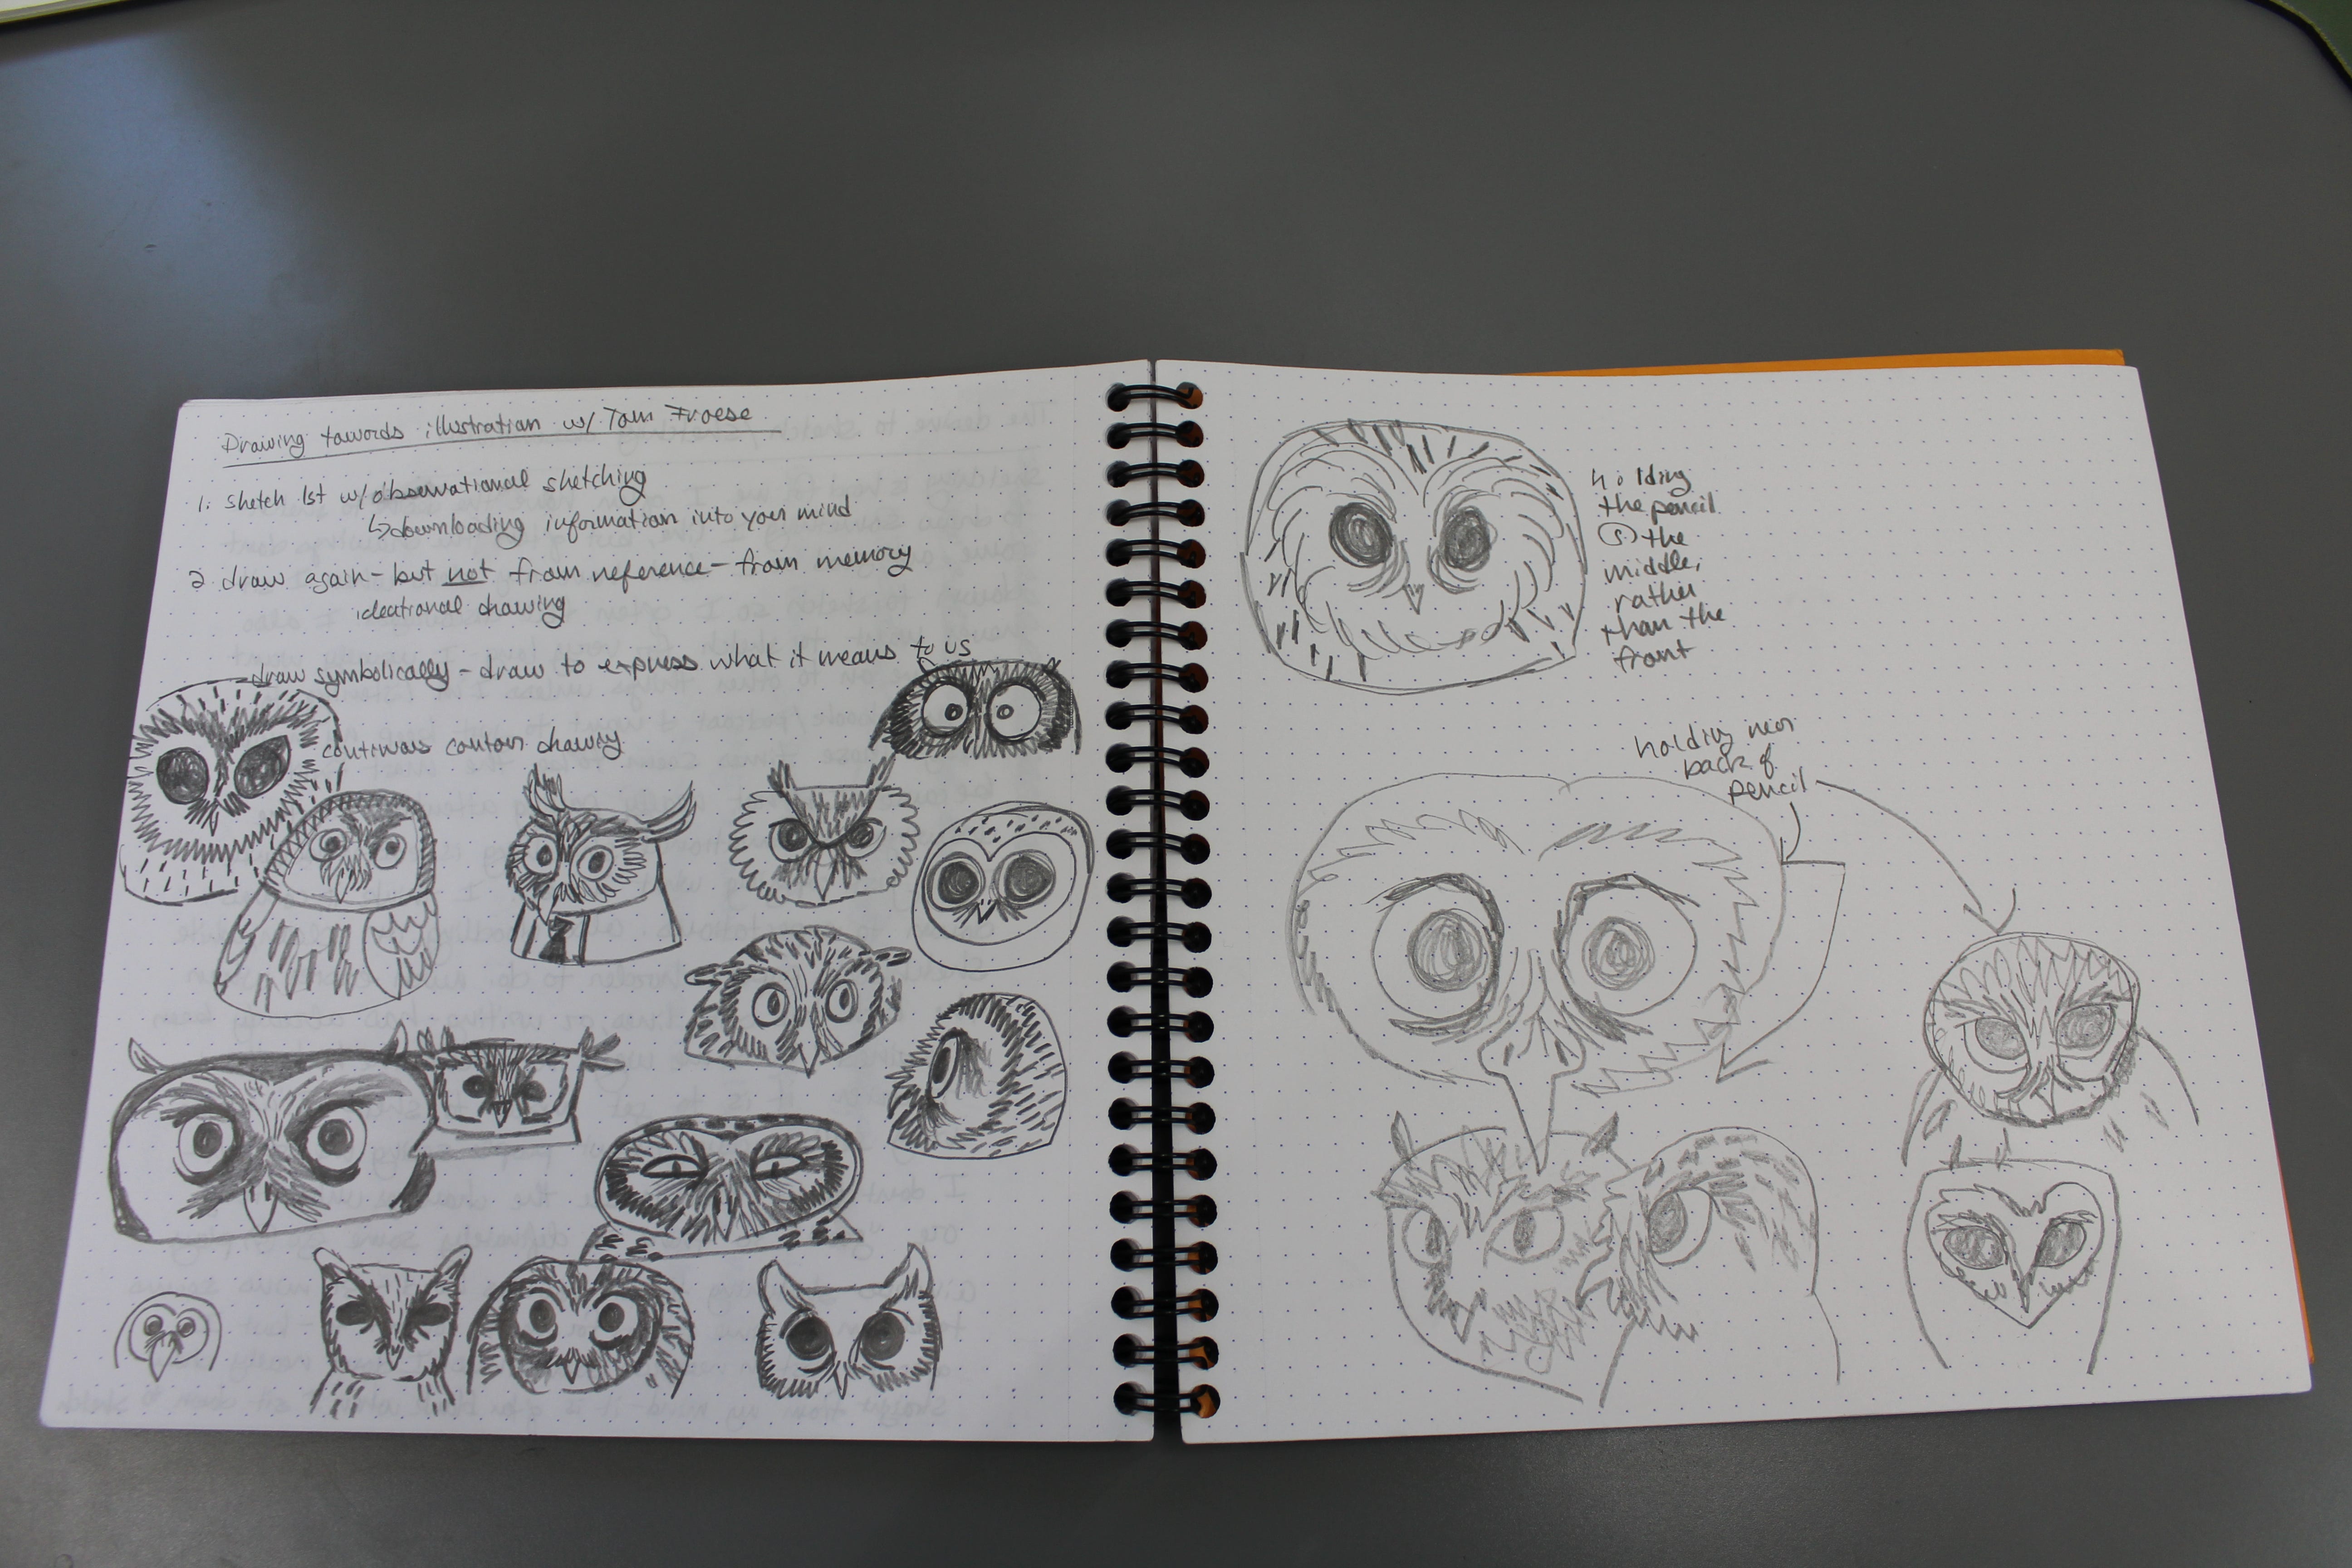 Drawing towards illustration w/ Tom Froese
1. sketch 1st w/ observational sketching
↳ downloading information into your mind
2 draw again - but not from reference - from memory
ideational drawing
draw symbolically - draw to express what it means to us
continuous contour drawing
holding
the pencil
the
middle,
rather
than the
front
holding near
back of
pencil